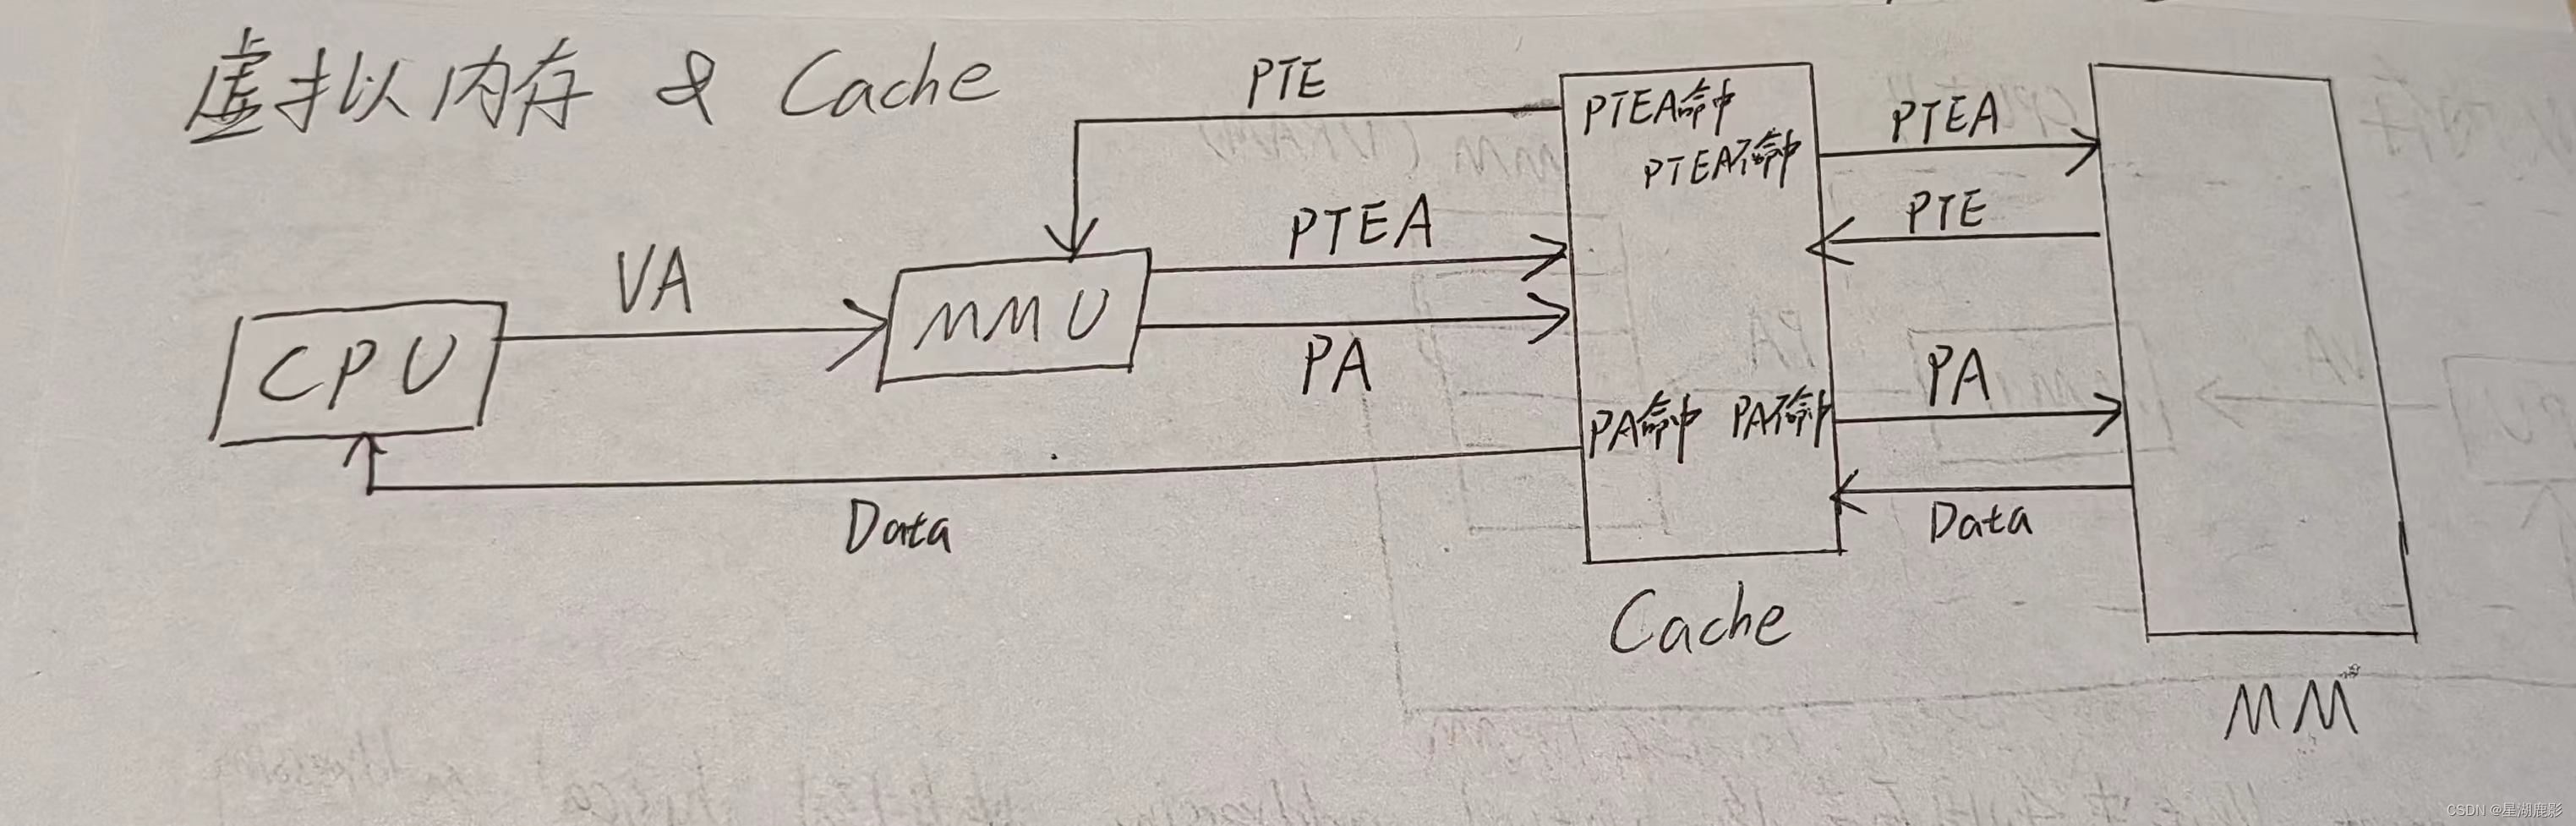 虚拟内存 & Cache
PTE
PTEA命中
PTEA不命中
PTEA
PTE
PTEA
VA
MMU
CPU
PA
PA
PA命中 PA不命中
Data
Data
Cache
MM
CSDN @星湖鹿影